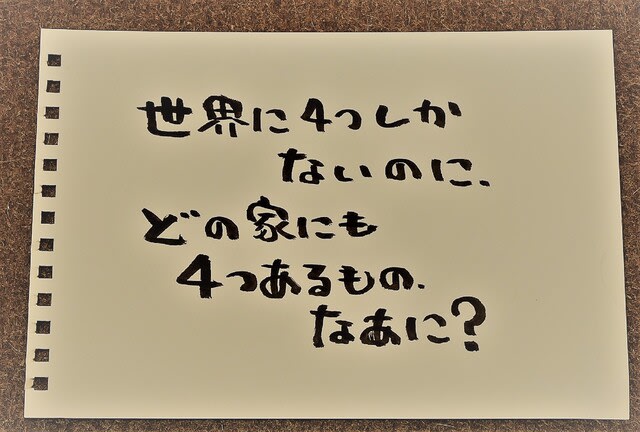 世界に4つしか
ないのに、
どの家にも
4つあるもの、
なあに?